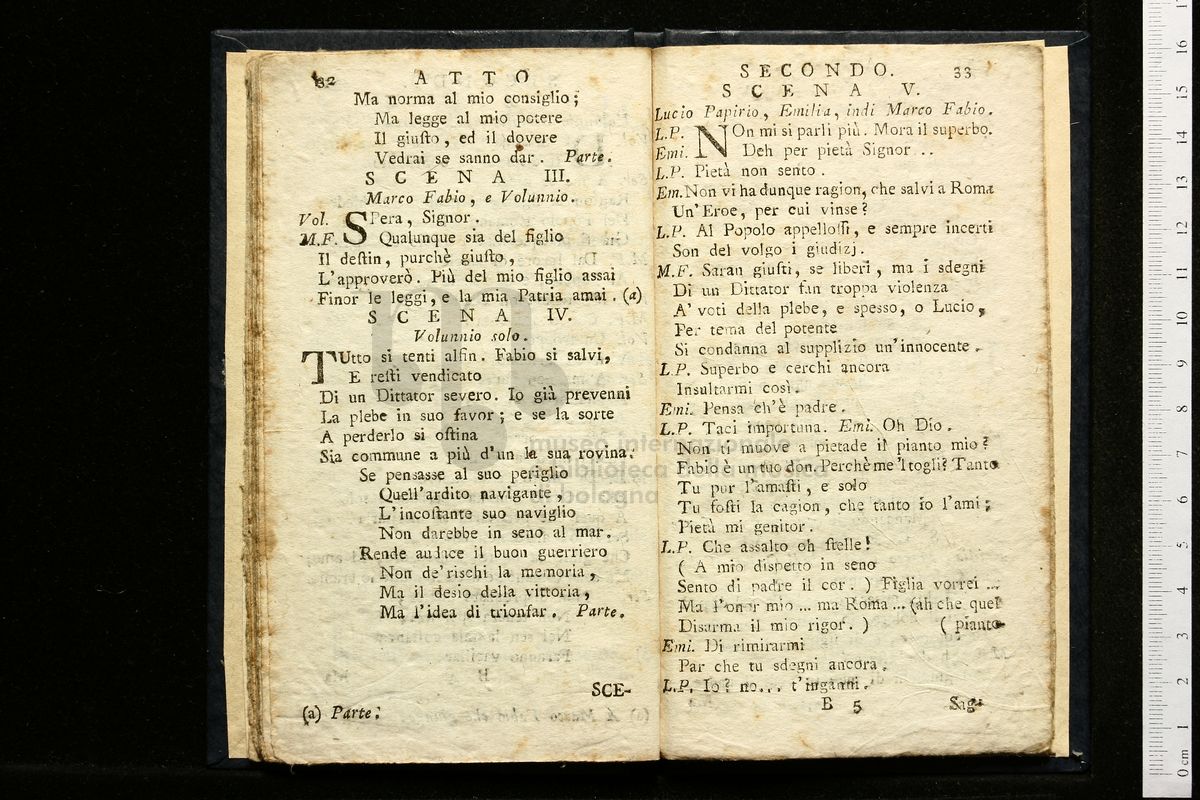 32 ATTO
Ma norma al mio consiglio;
Ma legge al mio potere
Il giuſto, ed il dovere
Vedrai se sanno dar. Parte.
SCENA III.
Marco Fabio, e Volunnio.
Vol. SPera, Signor.
M.F. Qualunque sia del figlio
Il deſtin, purchè giuſto,
L'approverò. Più del mio figlio assai
Finor le leggi, e la mia Patria amai. (a)
SCENA IV.
Volunnio solo.
TUtto si tenti alfin. Fabio si salvi,
E reſti vendicato
Di un Dittator severo. Io già prevenni
La plebe in suo favor; e se la sorte
A perderlo si oſtina
Sia commune a più d'un la sua rovina.
Se pensasse al suo periglio
Quell'ardito navigante,
L'incoſtante suo naviglio
Non darebbe in seno al mar.
Rende audace il buon guerriero
Non de'rischi la memoria,
Ma il desio della vittoria,
Ma l'idea di trionfar. Parte.
SCE-
(a) Parte.
SECONDO. 33
SCENA V.
Lucio Papirio, Emilia, indi Marco Fabio.
L.P. NOn mi si parli più. Mora il superbo.
Emi. Deh per pietà Signor ..
L.P. Pietà non sento.
Em. Non vi ha dunque ragion, che salvi a Roma
Un'Eroe, per cui vinse?
L.P. Al Popolo appelloſſi, e sempre incerti
Son del volgo i giudizj.
M.F. Saran giuſti, se liberi, ma i sdegni
Di un Dittator fan troppa violenza
A' voti della plebe, e spesso, o Lucio,
Per tema del potente
Si condanna al supplizio un'innocente.
L.P. Superbo e cerchi ancora
Insultarmi così.
Emi. Pensa ch'è padre.
L.P. Taci importuna. Emi. Oh Dio.
Non ti muove a pietade il pianto mio?
Fabio è un tuo don. Perchè me 'l togli? Tanto
Tu pur l'amaſti, e solo
Tu foſti la cagion, che tanto io l'ami;
Pietà mi genitor.
L.P. Che assalto oh ſtelle!
( A mio dispetto in seno
Sento di padre il cor. ) Figlia vorrei ...
Ma l'onor mio ... ma Roma ... (ah che quel
Disarma il mio rigor. ) ( pianto
Emi. Di rimirarmi
Par che tu sdegni ancora.
L.P. Io? no... t'inganni.
B 5 Sag-
museo internazionale
biblioteca della musica
di bologna